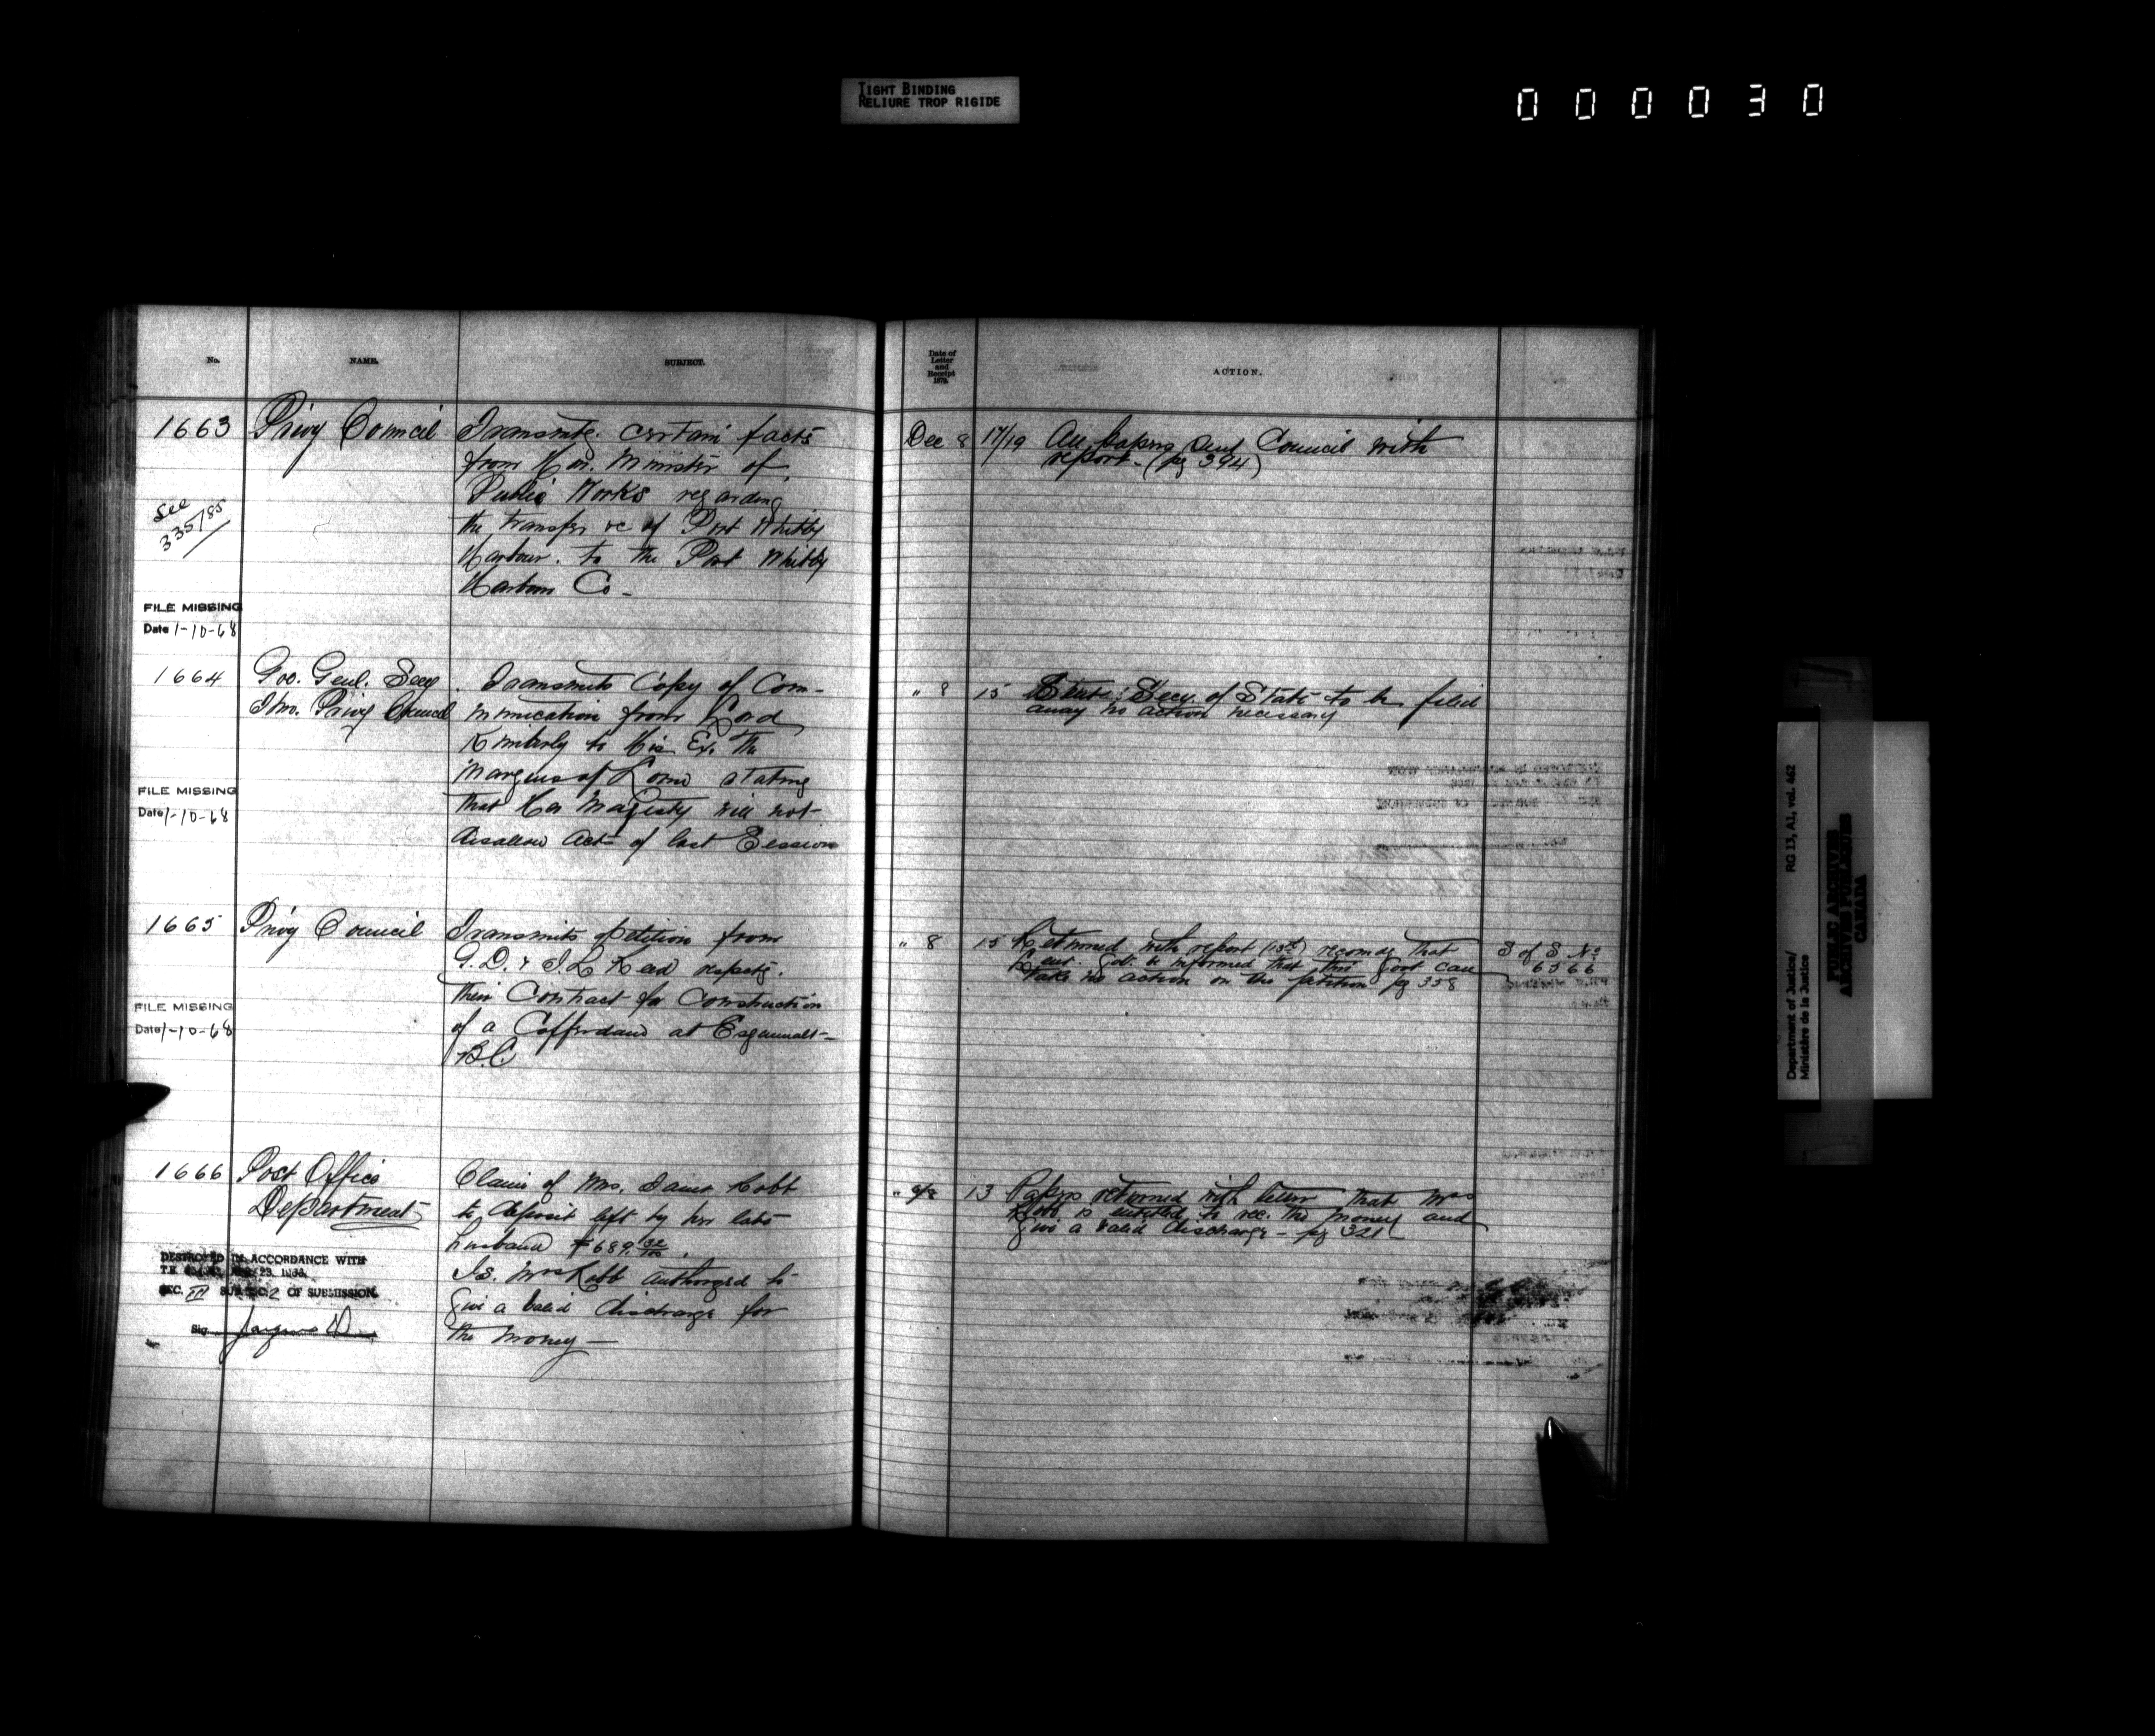 TIGHT BINDING
RELIURE TROP RIGIDE
000030
No.
NAME.
SUBJECT.
1663
Privy Council
Transmtg. certain facts
from Hon. Minister of
Public Works regarding
the transfer &c of Port Whitby
Harbour. to the Port Whitby
Harbour Co -
See
335/85
FILE MISSING
Date 1-10-68
1664
Gov. Genl. Secy
Thro. Privy Council
Transmits Copy of Com-
munication from Lord
Kimberly to His Ex. the
Marquis of Lorne stating
that Her Majesty will not
disallow Acts of last Session
FILE MISSING
Date 1-10-68
1665
Privy Council
Transmits petition from
G.D. & J.L. respectg.
their Contract for Construction
of a Cofferdam at Esquimalt
B.C.
FILE MISSING
Date 1-10-68
1666
Post Office
Department
Claim of Mrs. Robb
to deposit left by her late
husband $689 32/100.
Is Mrs Robb authorized to
Give a valid discharge for
the money —
DESTROYED IN ACCORDANCE WITH
T.B. 23,
SEC. III SUBSEC. 2 OF SUBMISSION.
Sig.
Date of
Letter
and
Receipt
187
ACTION.
Dec 8 17/19 All papers sent Council with
report - (pg 394)
" 8 15 Secy of State to be filed
away no action necessary
" 8 15 Returned with report (15th) recomdg that
Govt. be informed that this Govt can
take no action on the petition pg 358
S of S No
6566
" 9/8 13 Papers returned with letter that Mrs
Robb is entitled to rec. the money and
Give a valid discharge - pg 321
Department of Justice/
Ministère de la Justice
RG 13, A1, vol. 462
PUBLIC ARCHIVES
ARCHIVES PUBLIQUES
CANADA